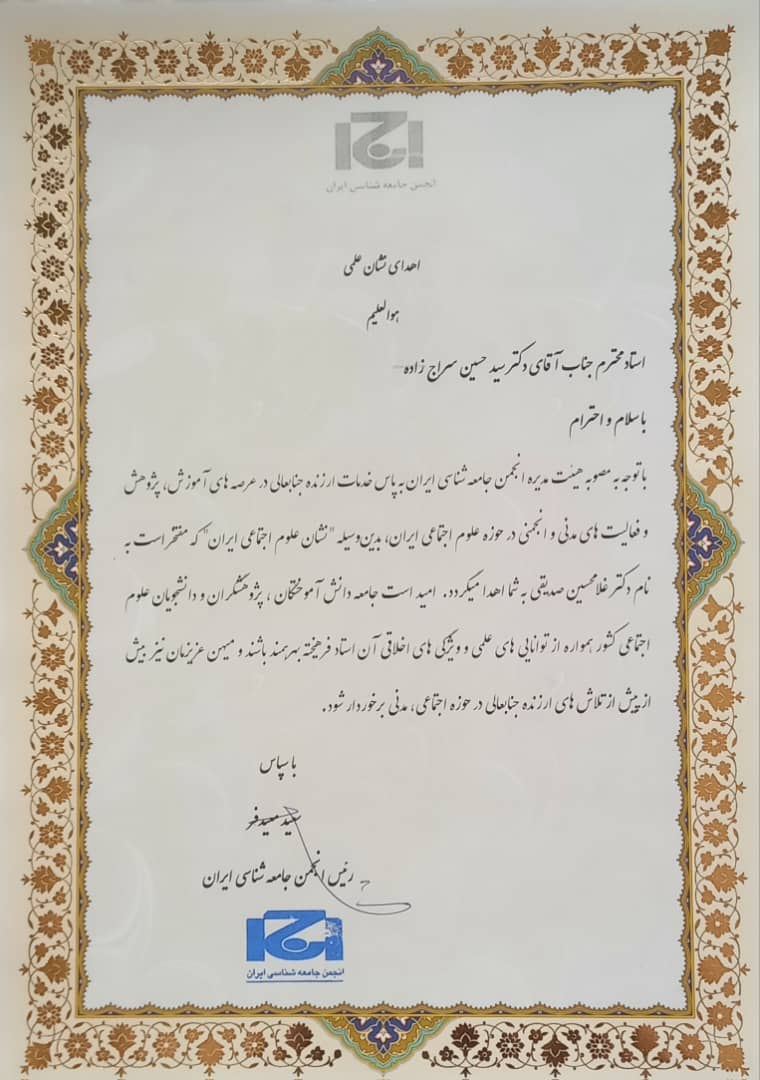 انجمن جامعه شناسی ایران
اهدای نشان علمی
هوالعلیم
استاد محترم جناب آقای دکتر سید حسین سراج زاده
با سلام و احترام
با توجه به مصوبه هیئت مدیره انجمن جامعه شناسی ایران به پاس خدمات ارزنده جنابعالی در عرصه های آموزش، پژوهش
و فعالیت های مدنی و انجمنی در حوزه علوم اجتماعی ایران، بدین‌وسیله "نشان علوم اجتماعی ایران" که مفتخر است به
نام دکتر غلامحسین صدیقی به شما اهدا میگردد. امید است جامعه دانش آموختگان، پژوهشگران و دانشجویان علوم
اجتماعی کشور همواره از توانایی های علمی و ویژگی های اخلاقی آن استاد فرهیخته بهرهمند باشند و میهن عزیزمان نیز بیش
از پیش از تلاش های ارزنده جنابعالی در حوزه اجتماعی، مدنی برخوردار شود.
با سپاس
سعید معیدفر
رئیس انجمن جامعه شناسی ایران
انجمن جامعه شناسی ایران